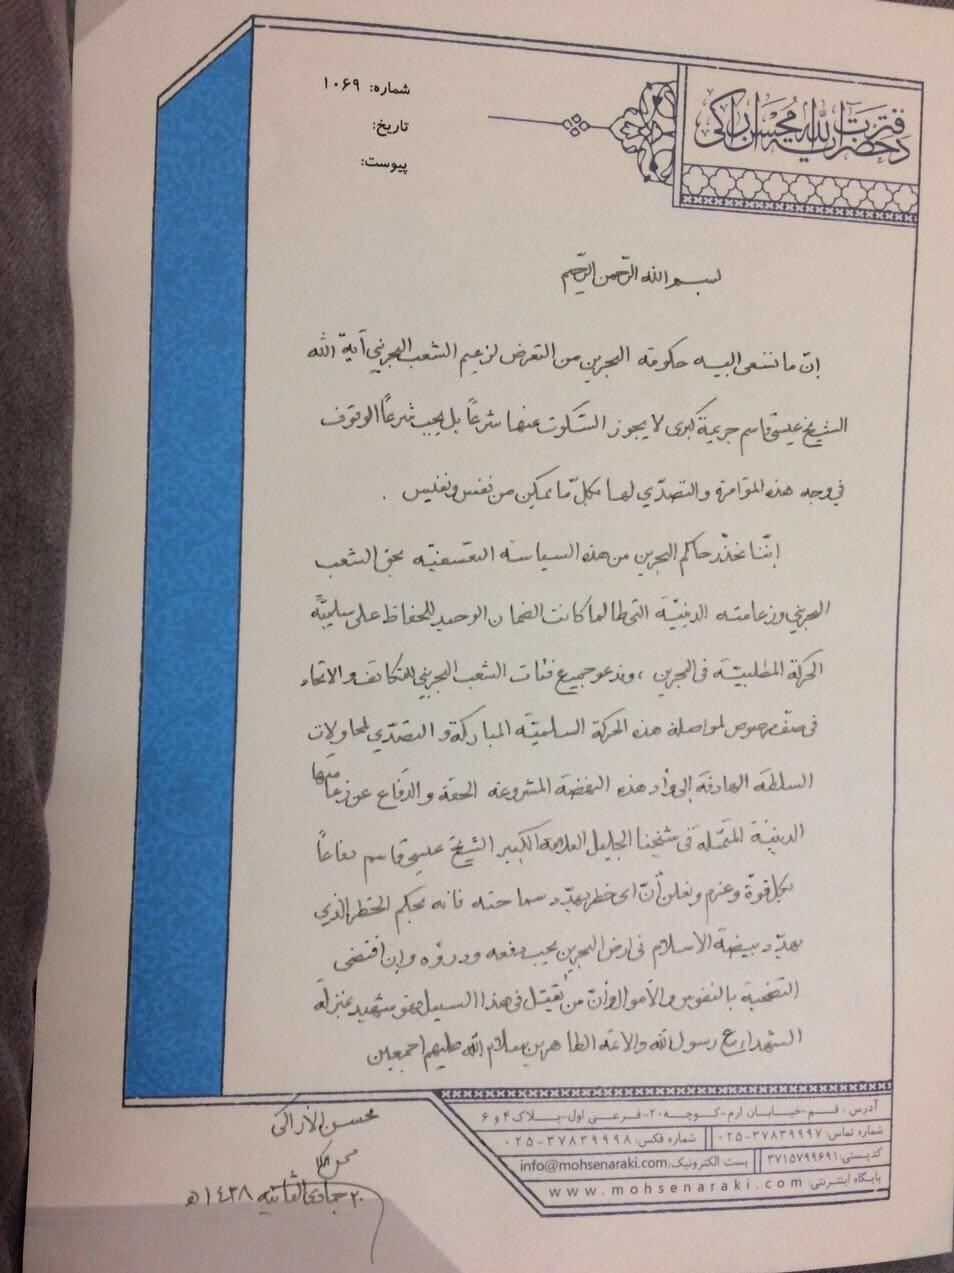 دفتر حضرت آية الله محسن اراکی
شماره: ۱۰۶۹
تاریخ:
پیوست:
بسم الله الرّحمن الرّحیم
إنّ ما تسعى إليه حكومة البحرين من التعرض لزعيم الشعب البحريني آية الله
الشيخ عيسى قاسم جريمة كبرى لا يجوز السّكوت عنها شرعاً بل يجب شرعاً الوقوف
في وجه هذه المؤامرة والتصدّي لها بكلّ ما يمكن من نفس ونفيس .
إنّنا نحذّر حاكم البحرين من هذه السياسة التعسفيّة بحق الشعب
البحريني وزعامته الدينيّة التي طالما كانت الضمان الوحيد للحفاظ على سلميّة
الحركة المطلبيّة في البحرين ، وندعو جميع فئات الشعب البحريني للتكاتف والاتحاد
في صفّ مرصوص لمواصلة هذه الحركة السلميّة المباركة و التصدّي لمحاولات
السلطة الهادفة إلى وأد هذه النهضة المشروعة الحقة والدفاع عن زعامتها
الدينيّة المتمثلة في شيخنا الجليل العلامة الكبير الشيخ عيسى قاسم دفاعاً
بكل قوّة وعزم ونعلن أنّ اى خطر يهدّد سماحته فانه بحكم الخطر الذي
يهدّد بيضة الاسلام في ارض البحرين يجب دفعه ودرؤه وإن اقتضى
التضحية بالنفوس والأموال وأنّ من يُقتل في هذا السبيل فهو شهيد بمنزلة
الشهداء مع رسول الله والائمة الطاهرين سلام الله عليهم اجمعين
محسن الأراکی
۲۰ جمادی الثانیه ۱۴۳۸ هـ
آدرس : قم-خیابان ارم-کوچه ۲۰-فرعی اول-پلاک ۴ و ۶
شماره تماس: ۳۷۸۳۹۹۹۷-۰۲۵ شماره فکس: ۳۷۸۳۹۹۹۸-۰۲۵
کدپستی: ۳۷۱۵۷۹۹۶۹۱ پست الکترونیک: info@mohsenaraki.com
پایگاه اینترنتی: www.mohsenaraki.com